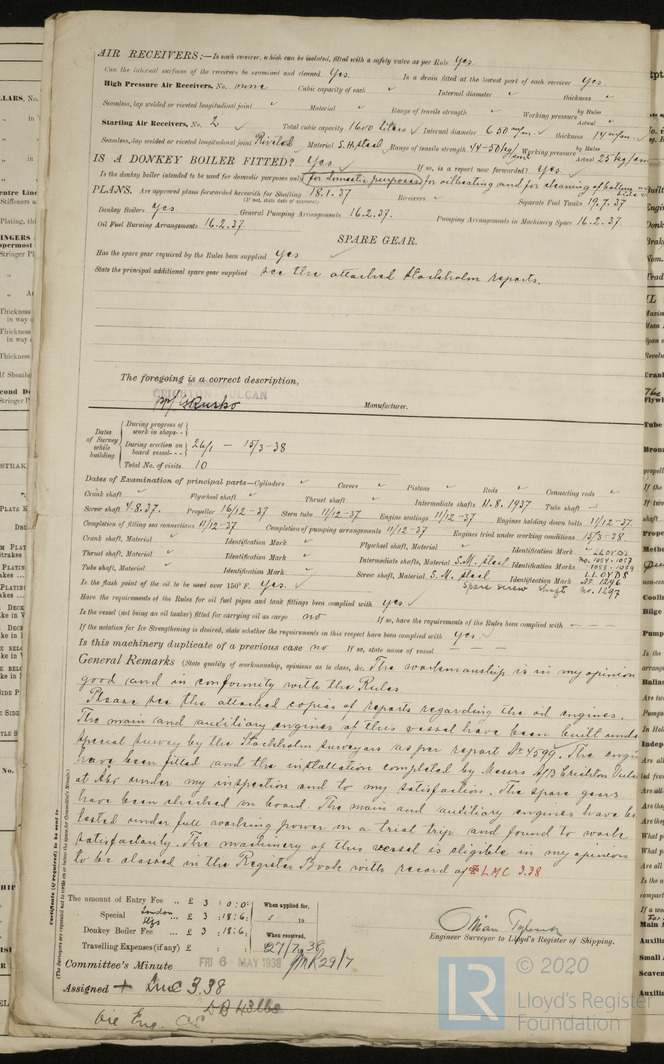 AIR RECEIVERS:—Is each receiver, which can be isolated, fitted with a safety valve as per Rule Yes.
Can the internal surfaces of the receivers be examined and cleaned Yes. Is a drain fitted at the lowest part of each receiver Yes
High Pressure Air Receivers, No. none Cubic capacity of each Internal diameter thickness
Seamless, lap welded or riveted longitudinal joint Material Range of tensile strength Working pressure by Rules Actual
Starting Air Receivers, No. 2 Total cubic capacity 1600 liters Internal diameter 630 m/m thickness 14 m/m
Seamless, lap welded or riveted longitudinal joint Riveted Material S.M. steel Range of tensile strength 44-50 kg/ Working pressure by Rules Actual 25 kg/cm
IS A DONKEY BOILER FITTED? Yes If so, is a report now forwarded? Yes
Is the donkey boiler intended to be used for domestic purposes only for domestic purposes for oil heating and for cleaning of bottom
PLANS. Are approved plans forwarded herewith for Shafting 18.1.37 Receivers Separate Fuel Tanks 19.7.37
(If not, state date of approval)
Donkey Boilers Yes General Pumping Arrangements 16.2.37. Pumping Arrangements in Machinery Space 16.2.37.
Oil Fuel Burning Arrangements 16.2.37
SPARE GEAR.
Has the spare gear required by the Rules been supplied Yes
State the principal additional spare gear supplied see the attached Stockholm reports.
The foregoing is a correct description,
CRICHTON-VULCAN
Manufacturer.
Dates of Survey while building
During progress of work in shops
During erection on board vessel 26/1 — 15/3-38
Total No. of visits 10
Dates of Examination of principal parts—Cylinders Covers Pistons Rods Connecting rods
Crank shaft Flywheel shaft Thrust shaft Intermediate shafts 11.8.1937 Tube shaft —
Screw shaft 4.8.37. Propeller 16/12-37 Stern tube 11/12-37 Engine seatings 11/12-37 Engines holding down bolts 11/12-37.
Completion of fitting sea connections 11/12-37 Completion of pumping arrangements 11/12-37 Engines tried under working conditions 15/3-38
Crank shaft, Material Identification Mark Flywheel shaft, Material Identification Mark LLOYDS
Thrust shaft, Material Identification Mark Intermediate shafts, Material S.M. steel Identification Marks No. 1054-1057 1058-1059
Tube shaft, Material Identification Mark Screw shaft, Material S.M. steel Identification Mark LLOYDS No. 1296
Is the flash point of the oil to be used over 150° F. Yes. Spare screw shaft No. 1297
Have the requirements of the Rules for oil fuel pipes and tank fittings been complied with yes
Is the vessel (not being an oil tanker) fitted for carrying oil as cargo no If so, have the requirements of the Rules been complied with — — —
If the notation for Ice Strengthening is desired, state whether the requirements in this respect have been complied with Yes
Is this machinery duplicate of a previous case no If so, state name of vessel — — —
General Remarks (State quality of workmanship, opinions as to class, &c. The workmanship is in my opinion
good and in conformity with the Rules.
Please see the attached copies of reports regarding the oil engines.
The main and auxiliary engines of this vessel have been built under
special survey by the Stockholm surveyors as per report No 4599. The engines
have been fitted and the installation completed by Messrs A/B Crichton Vulcan
at Abo under my inspection and to my satisfaction. The spare gears
have been checked on board. The main and auxiliary engines have been
tested under full working power on a trial trip and found to work
satisfactorily. The machinery of this vessel is eligible in my opinion
to be classed in the Register Book with record of LMC 3.38
Certificate (if required) to be sent to
(The Surveyors are requested not to write on or below the space for Committee's Minute.)
The amount of Entry Fee £ 3 : 0 : 0 When applied for,
Special London £ 3 : 18 : 6 19
Donkey Boiler Fee £ 3 : 18 : 6 When received,
Travelling Expenses (if any) £ 27/7 38
29/7
Engineer Surveyor to Lloyd's Register of Shipping.
Committee's Minute FRI 6 MAY 1938
Assigned + LMC 3.38
Oil Eng.
LR
© 2020
Lloyd's Register
Foundation